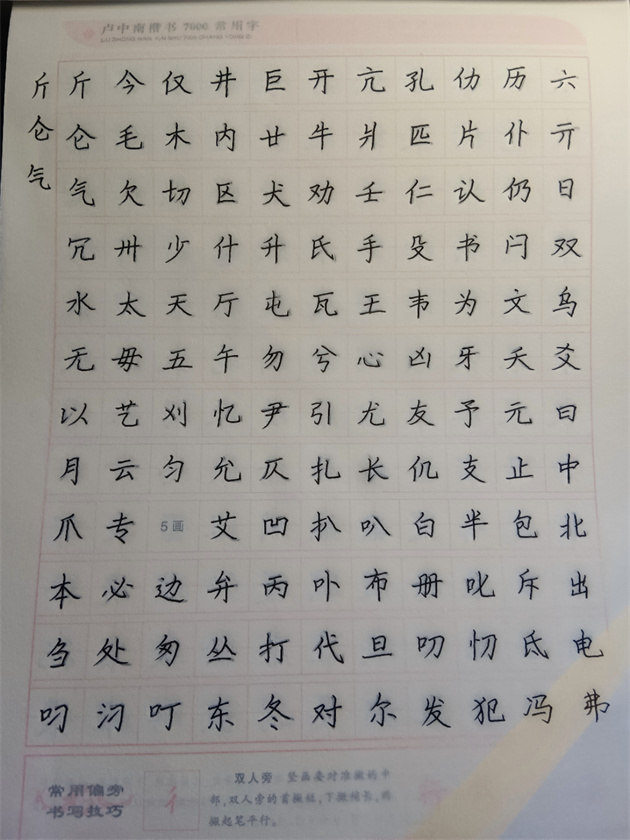 卢中南楷书7000常用字
斤 斤 今 仅 井 巨 开 亢 孔 仂 历 六
仑 仑 毛 木 内 廿 牛 爿 匹 片 仆 亓
气 气 欠 切 区 犬 劝 壬 仁 认 仍 日
冗 卅 少 什 升 氏 手 殳 书 闩 双
水 太 天 厅 屯 瓦 王 韦 为 文 乌
无 毋 五 午 勿 兮 心 凶 牙 夭 爻
以 艺 刈 忆 尹 引 尤 友 予 元 曰
月 云 匀 允 仄 扎 长 仉 支 止 中
爪 专 5画 艾 凹 扒 叭 白 半 包 北
本 必 边 弁 丙 卟 布 册 叱 斥 出
刍 处 匆 丛 打 代 旦 叨 忉 氐 电
叼 汈 叮 东 冬 对 尔 发 犯 冯 弗
常用偏旁
书写技巧
彳
双人旁 竖画要对准撇的中
部,双人旁的首撇短,下撇稍长,两
撇起笔平行。